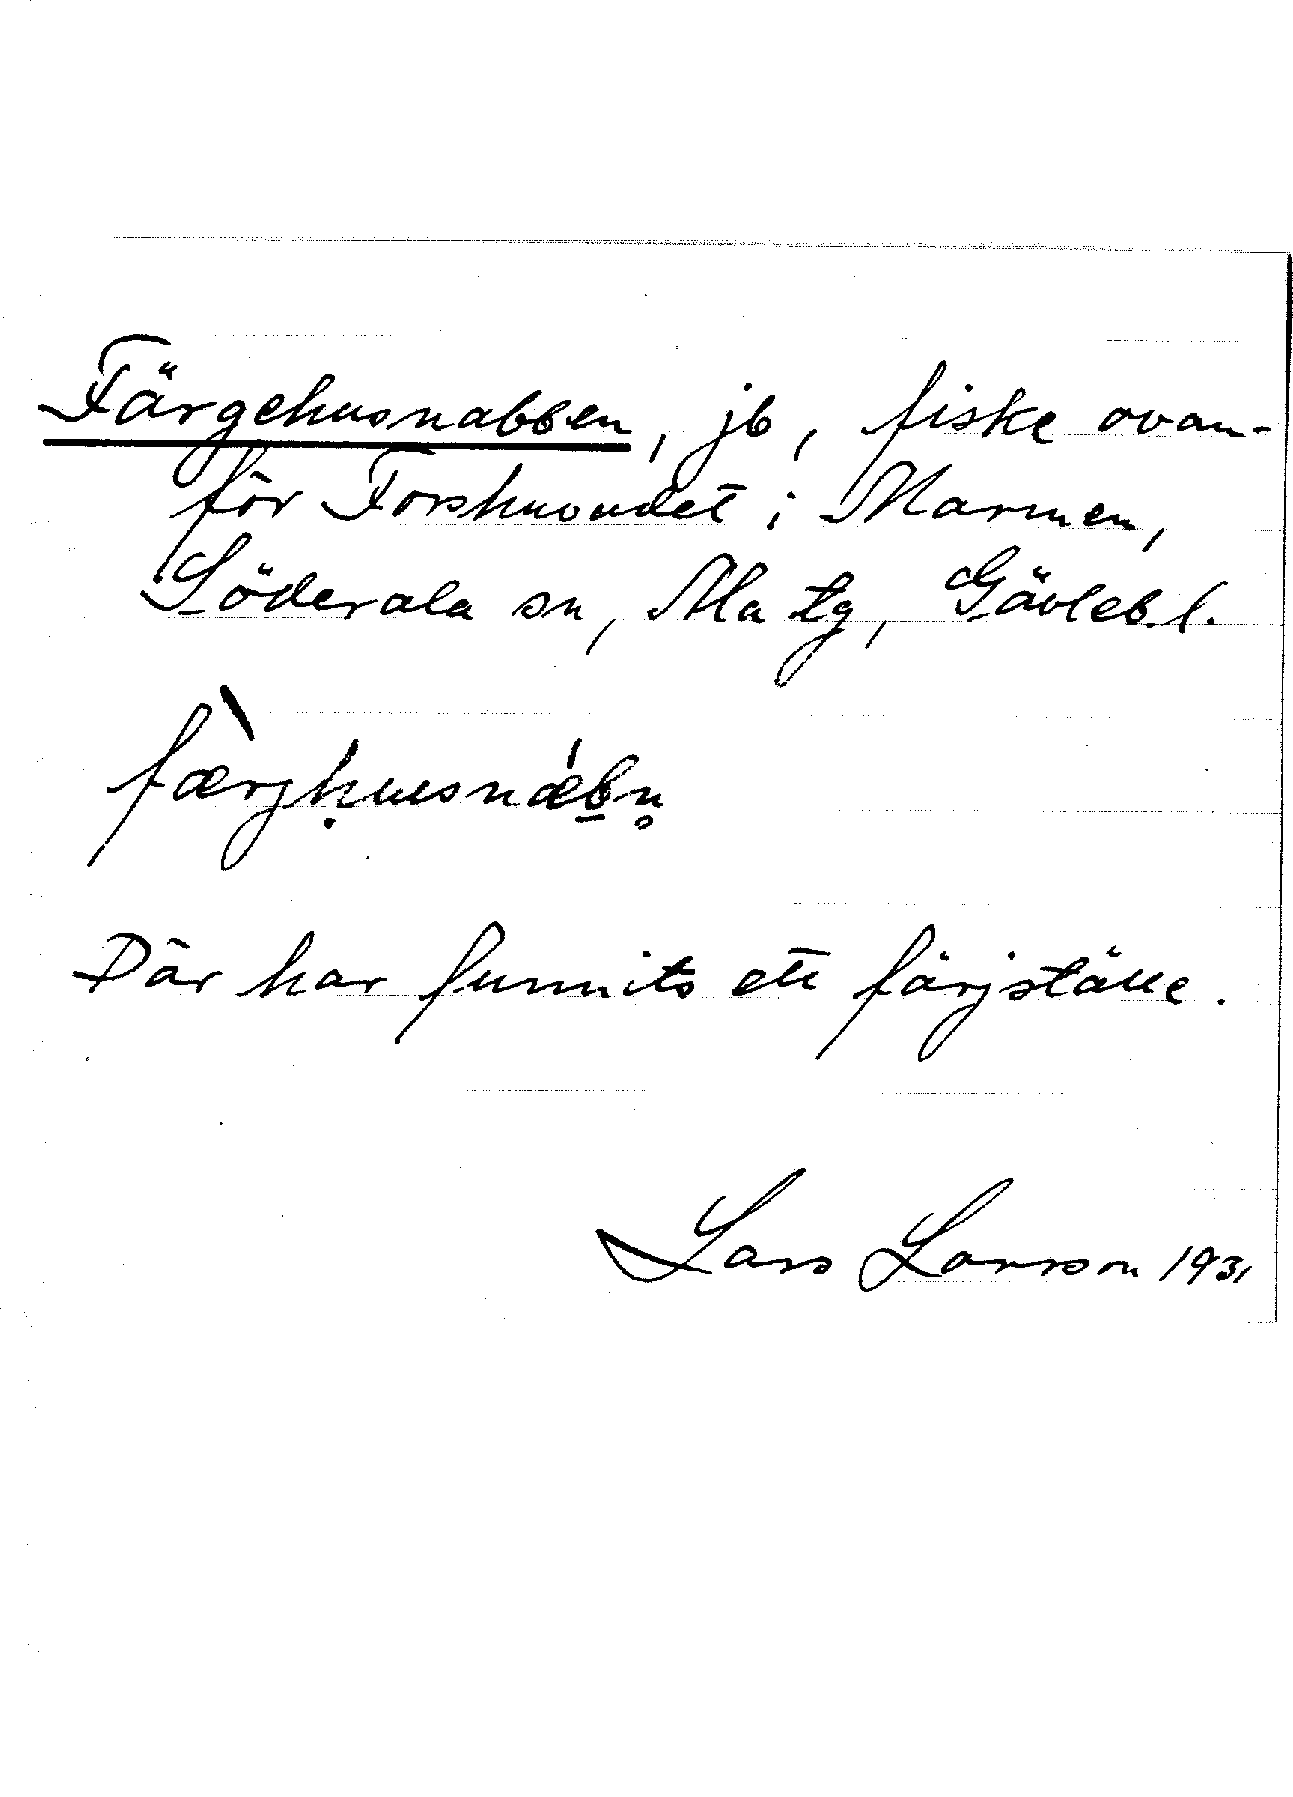 Färgehusnabben, jb, fiske ovan-
för Forshuvudet i Marmen,
Söderala sn, Ala tg, Gävleb. l.
fæ̀rjḥusnǽb̲n̥
Där har funnits ett färjställe.
Lars Larsson 1931